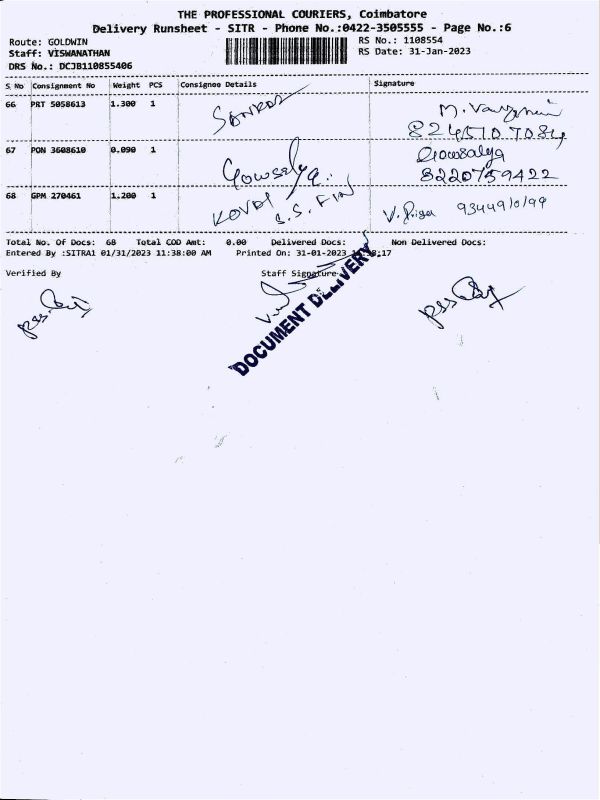 THE PROFESSIONAL COURIERS, Coimbatore
Delivery Runsheet - SITR - Phone No.:0422-3505555 - Page No.:6
Route: GOLDWIN RS No.: 1108554
Staff: VISWANATHAN RS Date: 31-Jan-2023
DRS No.: DCJB110855406
S No Consignment No Weight PCS Consignee Details Signature
66 PRT 5058613 1.300 1
67 PON 3608610 0.090 1 Gowsalya Gowsalya
8220759422
68 GPM 270461 1.200 1 KOVAI S.S. FIN V. Priya
Total No. Of Docs: 68 Total COD Amt: 0.00 Delivered Docs: Non Delivered Docs:
Entered By :SITRA1 01/31/2023 11:38:00 AM Printed On: 31-01-2023
Verified By Staff Signature
DOCUMENT DELIVERY